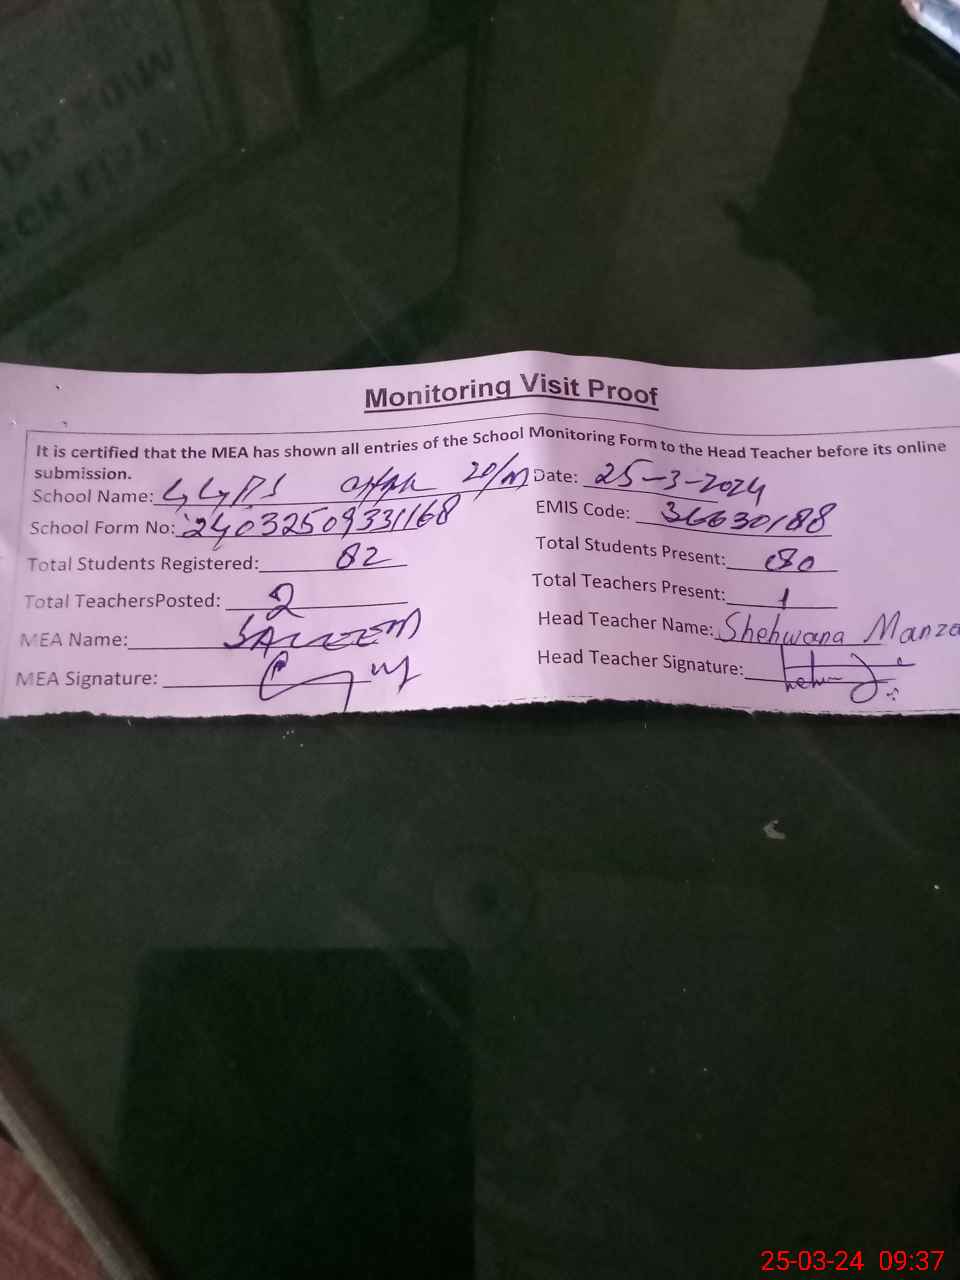 Monitoring Visit Proof
It is certified that the MEA has shown all entries of the School Monitoring Form to the Head Teacher before its online
submission.
School Name: GGPS 20/M Date: 25-3-2024
School Form No: 24032509331168 EMIS Code: 36630188
Total Students Registered: 82 Total Students Present: 80
Total TeachersPosted: 2 Total Teachers Present: 1
MEA Name: SALEEM Head Teacher Name: Shehwana Manzo
MEA Signature: Head Teacher Signature:
25-03-24 09:37